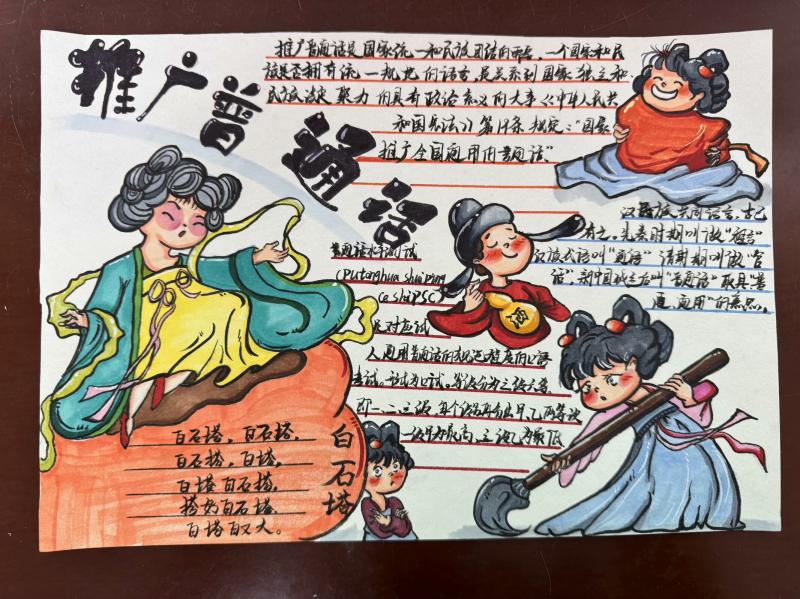 推广普通话
推广普通话是国家统一和民族团结的需要,一个国家和民
族是否拥有统一规范的语言,是关系到国家独立和
民族凝聚力的具有政治意义的大事《中华人民共
和国宪法》第19条规定:"国家
推广全国通用的普通话"
汉民族共同语言,古已
有之,先秦时期叫做"雅言"
汉族式语叫"通语"清朝期叫做"官
话",新中国成立后叫"普通话"取其"普
遍、通用"的意思。
普通话水平测试
(Putonghua shuiping
ce shiPSC)
是对应试
人运用普通话的规范程度的口语
考试,形式为口试。等级分为三级六等,
即一、二、三级,每个级再分出甲乙两等次
一级甲为最高,三级乙为最低
白石塔
白石塔,白石搭,
白石搭,白塔,
白塔白石搭,
搭好白石塔,
白塔白又大。